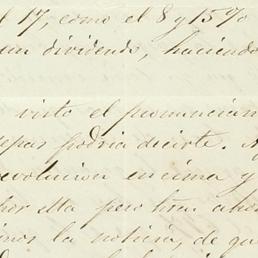 l 17, como el 8 y 15 %
un dividendo, haciendo
visto el pronunciam
sepas podria decirte. A
evolucion encima y
por ella pero hasta ahor
la noticia, de qu